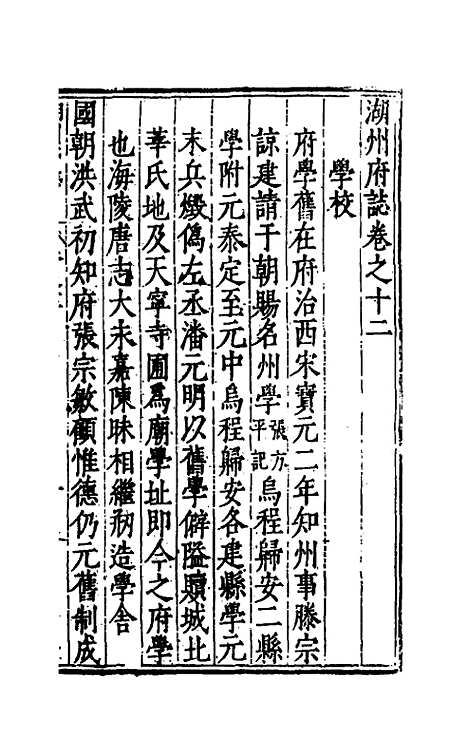 湖州府誌卷之十二
學校
府學舊在府治西宋寶元二年知州事滕宗
諒建請于朝賜名州學張方平記烏程歸安二縣
學附元泰定至元中烏程歸安各建縣學元
末兵燬偽左丞潘元明以舊學僻隘贖城北
莘氏地及天寧寺圃爲廟學址即今之府學
也海陵唐志大永嘉陳昧相繼刱造學舍
國朝洪武初知府張宗敏顧惟德仍元舊制成